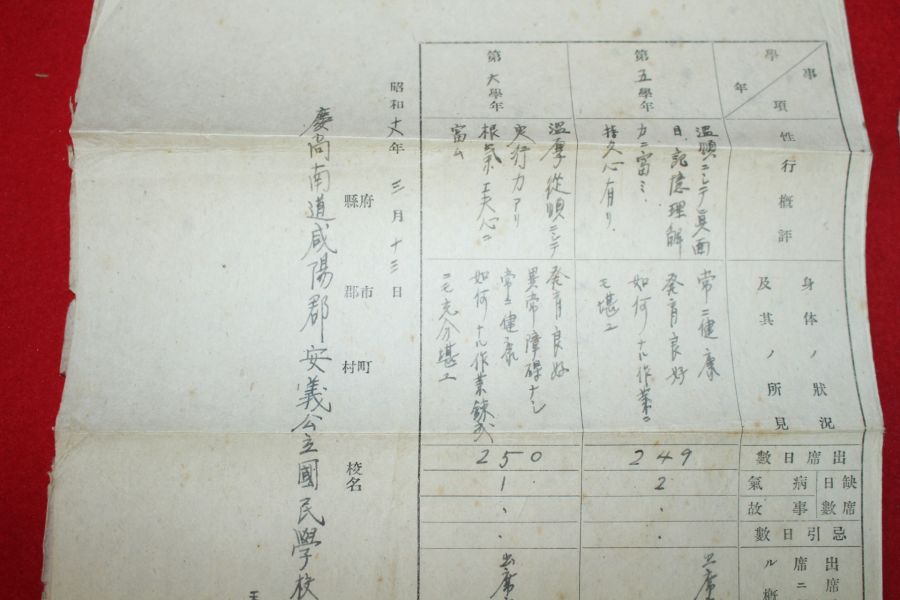 事項
學年
性行概評
身体ノ狀況
及其ノ所見
出席日數
缺席日數
病氣
事故
忌引日數
出席
ル概
第五學年
溫順ニシテ眞面
目、記憶理解
力ニ富ミ、
持久心有リ、
常ニ健康
發育良好
如何ナル作業ニ
モ堪エ
249
2
出席
第六學年
溫厚從順ニシテ
実行力アリ
根氣、工夫心ニ
富ム
發育良好
異常障碍ナシ
常ニ健康
如何ナル作業錬成
ニモ充分堪エ
250
1
出席
昭和 年 三月十三日
府縣
市郡
町村
校名
慶尚南道咸陽郡安義公立國民學校